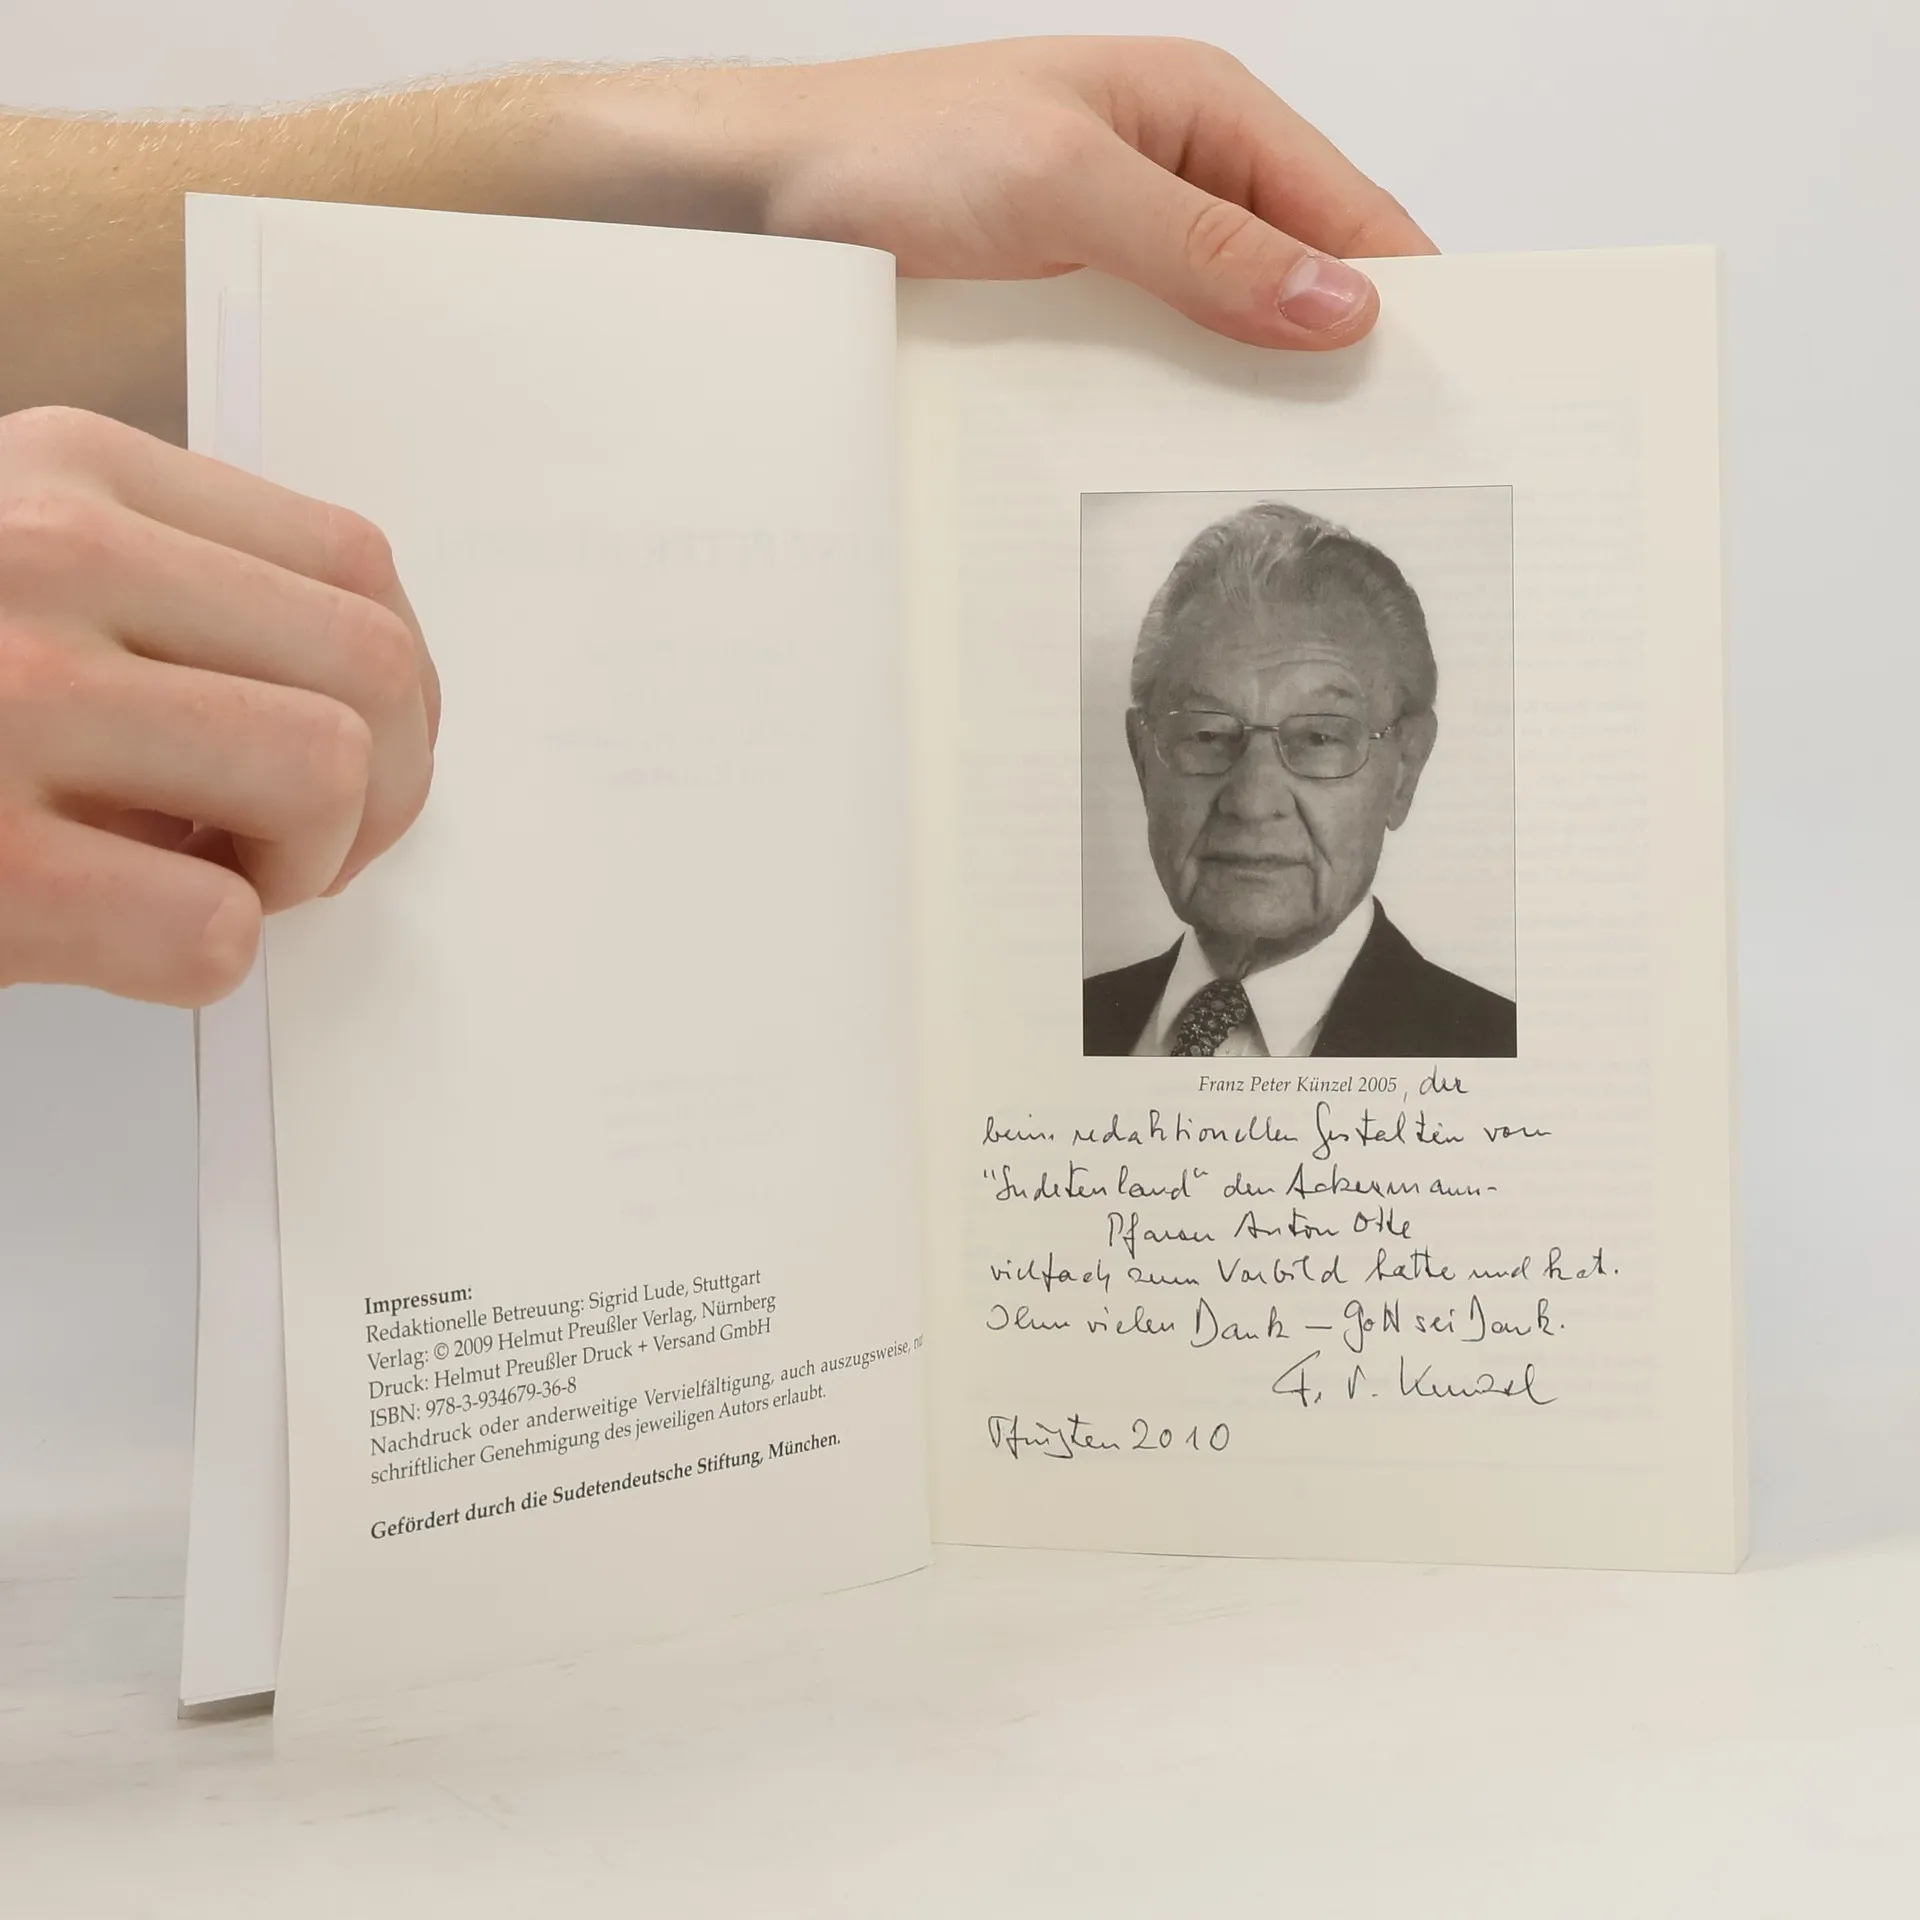 Impressum:
Redaktionelle Betreuung: Sigrid Lude, Stuttgart
Verlag: © 2009 Helmut Preußler Verlag, Nürnberg
Druck: Helmut Preußler Druck + Versand GmbH
ISBN: 978-3-934679-36-8
Nachdruck oder anderweitige Vervielfältigung, auch auszugsweise,
schriftlicher Genehmigung des jeweiligen Autors erlaubt.
Gefördert durch die Sudetendeutsche Stiftung, München.
Franz Peter Künzel 2005, der
beim redaktionellen Gestalten vom
"Sudetenland" den Ackermann-
Pfarrer Anton Otte
vielfach zum Vorbild hatte und hat.
Ihm vielen Dank – Gott sei Dank.
F. P. Künzel
Pfingsten 2010